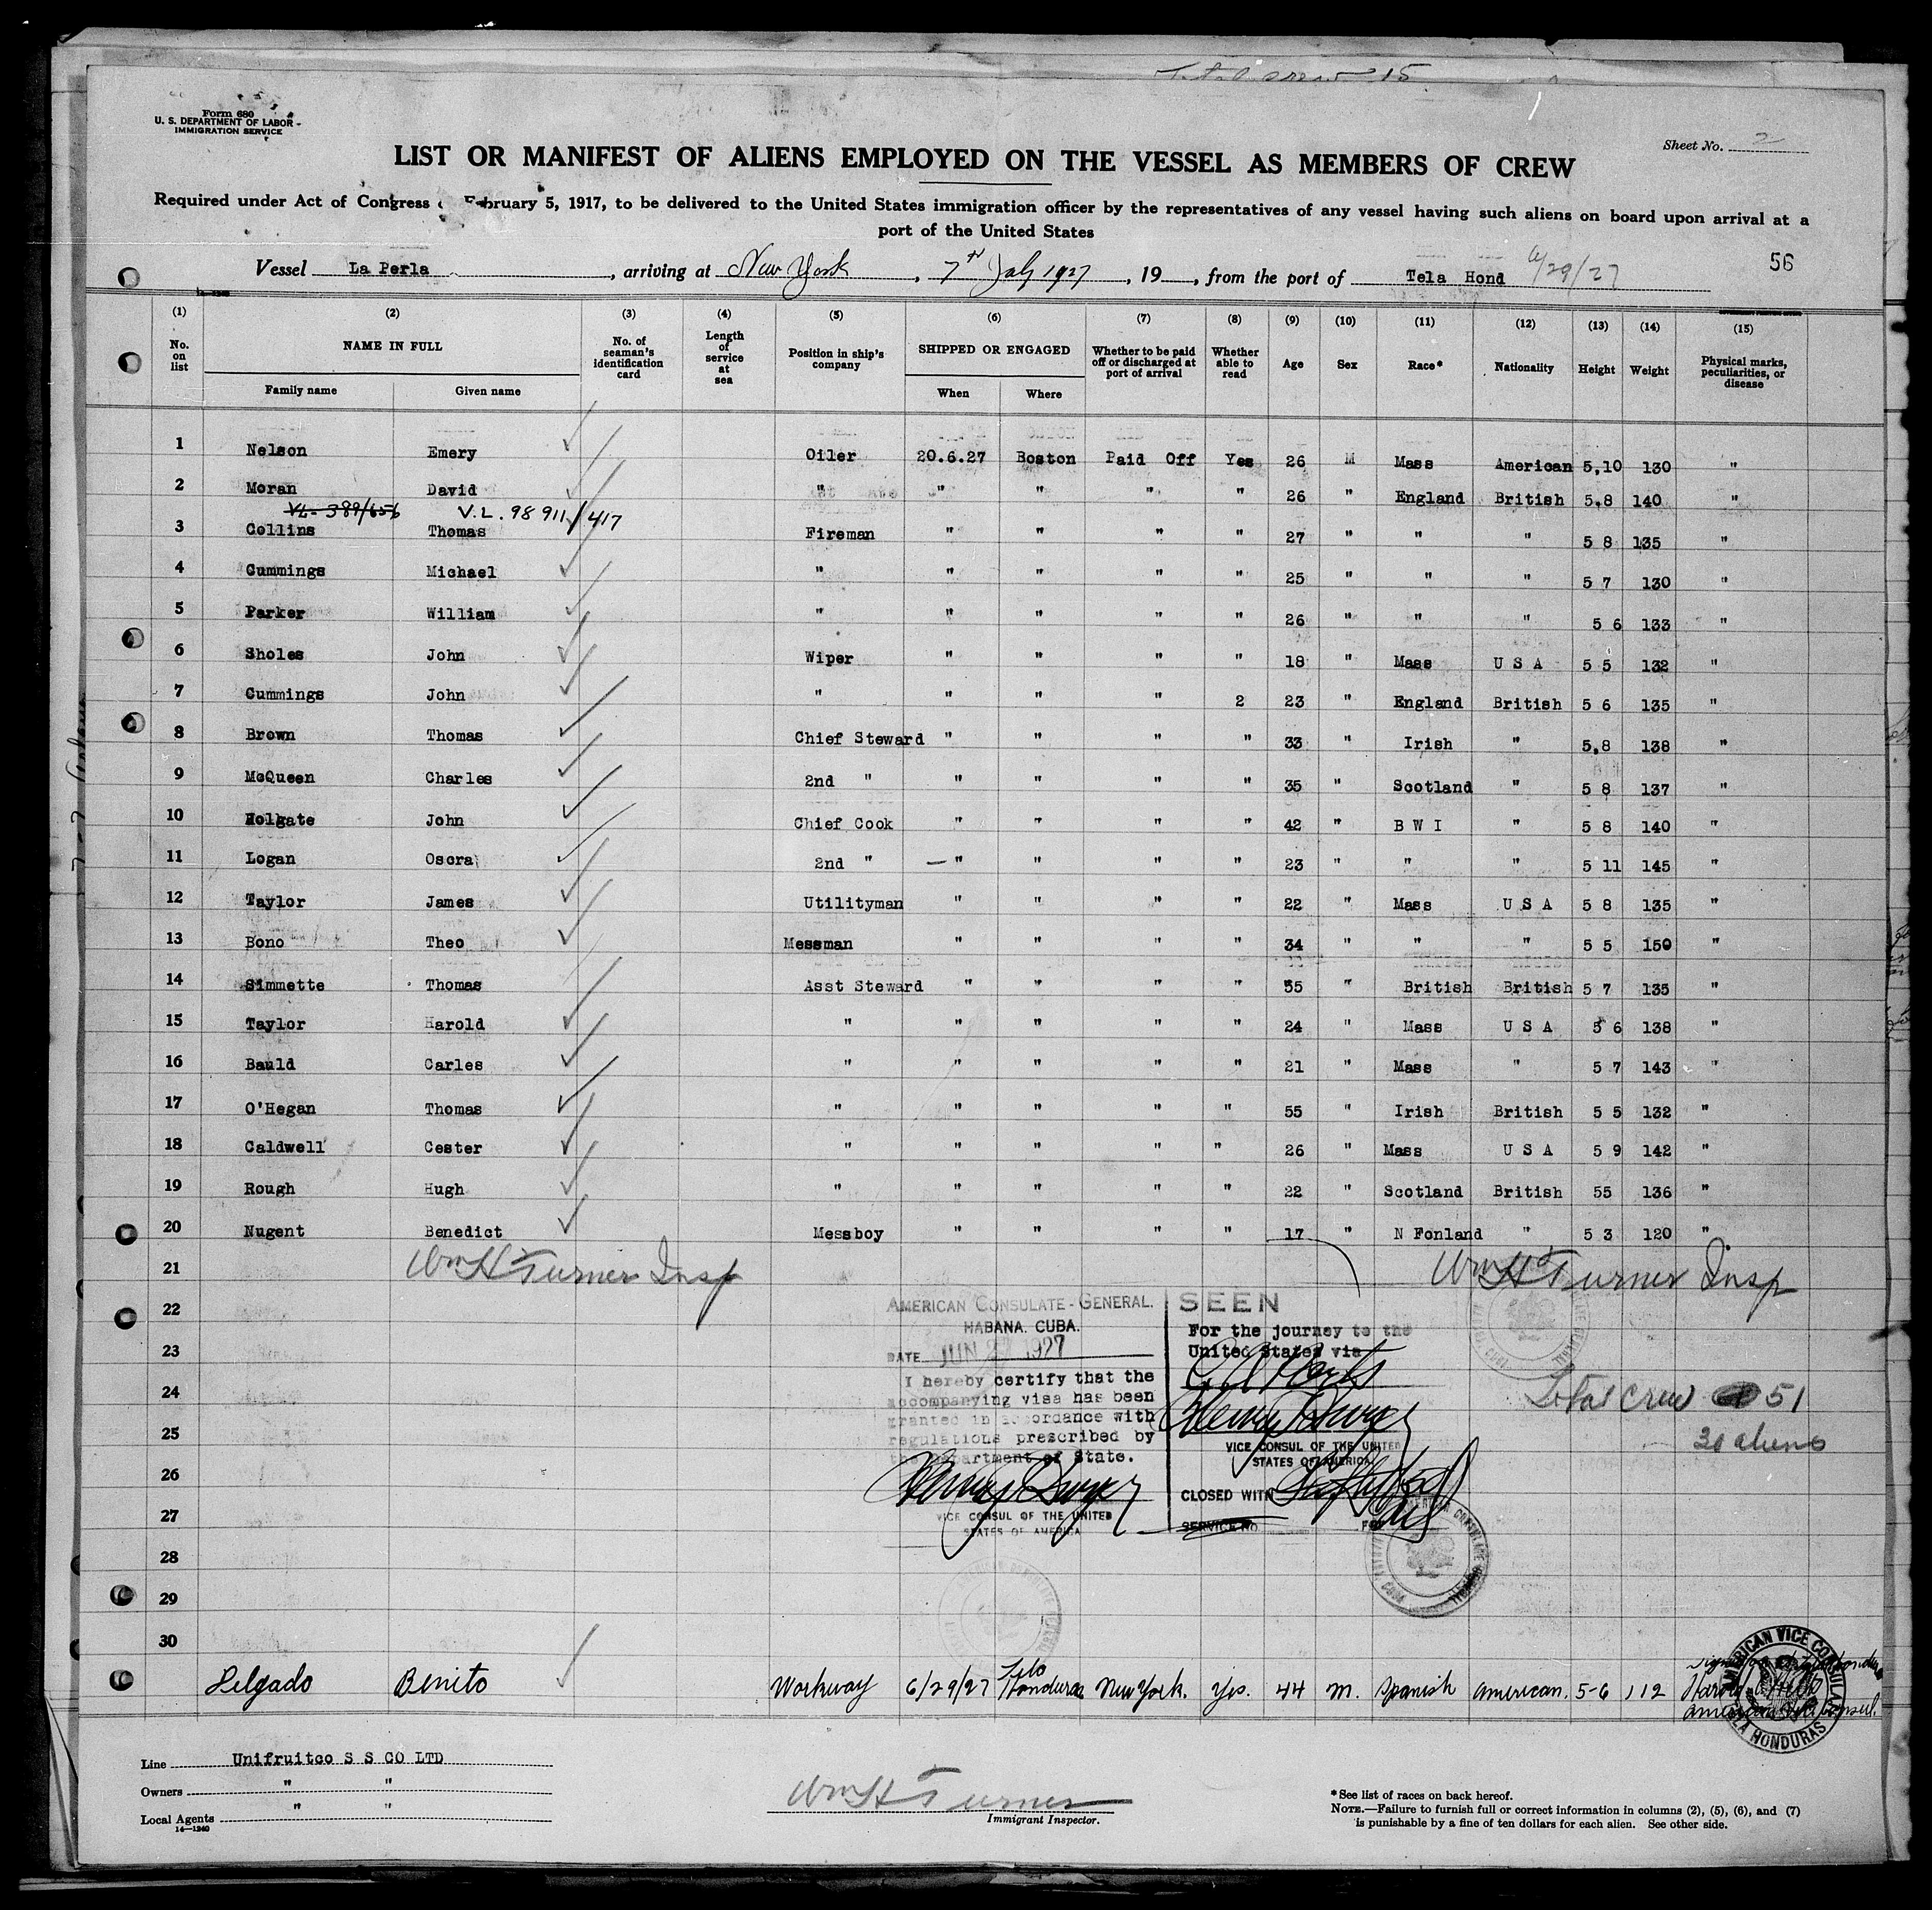 Total crew 15
Form 680
U. S. DEPARTMENT OF LABOR
IMMIGRATION SERVICE
Sheet No. 2
LIST OR MANIFEST OF ALIENS EMPLOYED ON THE VESSEL AS MEMBERS OF CREW
Required under Act of Congress February 5, 1917, to be delivered to the United States immigration officer by the representatives of any vessel having such aliens on board upon arrival at a
port of the United States
Vessel La Perla, arriving at New York, 7th July 1927, 19, from the port of Tela Hond 6/29/27
56
(1) (2) (3) (4) (5) (6) (7) (8) (9) (10) (11) (12) (13) (14) (15)
No. on list NAME IN FULL No. of seaman's identification card Length of service at sea Position in ship's company SHIPPED OR ENGAGED Whether to be paid off or discharged at port of arrival Whether able to read Age Sex Race* Nationality Height Weight Physical marks, peculiarities, or disease
Family name Given name When Where
1 Nelson Emery Oiler 20.6.27 Boston Paid Off Yes 26 M Mass American 5,10 130 "
2 Moran David " " " " " 26 " England British 5,8 140 "
VL- 389/656 V.L. 98 911/417
3 Collins Thomas Fireman " " " " 27 " " " 5 8 135 "
4 Cummings Michael " " " " " 25 " " " 5 7 130 "
5 Parker William " " " " " 26 " " " 5 6 133 "
6 Sholes John Wiper " " " " 18 " Mass U S A 5 5 132 "
7 Cummings John " " " " 2 23 " England British 5 6 135 "
8 Brown Thomas Chief Steward " " " " 33 " Irish " 5,8 138 "
9 McQueen Charles 2nd " " " " " 35 " Scotland " 5 8 137 "
10 Holgate John Chief Cook " " " " 42 " B W I " 5 8 140 "
11 Logan Oscra 2nd " — " " " " 23 " " " 5 11 145 "
12 Taylor James Utilityman " " " " 22 " Mass U S A 5 8 135 "
13 Bono Theo Messman " " " " 34 " " " 5 5 150 "
14 Simmette Thomas Asst Steward " " " " 55 " British British 5 7 135 "
15 Taylor Harold " " " " " 24 " Mass U S A 5 6 138 "
16 Bauld Carles " " " " " 21 " Mass " 5 7 143 "
17 O'Hegan Thomas " " " " " 55 " Irish British 5 5 132 "
18 Caldwell Cester " " " " " 26 " Mass U S A 5 9 142 "
19 Rough Hugh " " " " " 22 " Scotland British 55 136 "
20 Nugent Benedict Messboy " " " " 17 " N Fonland " 5 3 120 "
21 Wm H Turner Insp Wm H Turner Insp
22
23
24
25
26
27
28
29
30
AMERICAN CONSULATE-GENERAL.
HABANA. CUBA.
DATE JUN 2 1927
I hereby certify that the
accompanying visa has been
granted in accordance with
regulations prescribed by
the Department of State.
VICE CONSUL OF THE UNITED
STATES OF AMERICA
SEEN
For the journey to the
United States via
VICE CONSUL OF THE UNITED
STATES OF AMERICA
CLOSED WITH
SERVICE NO.
Total crew 51
30 aliens
Delgado Benito Workway 6/29/27 Tela Honduras New York. Yes. 44 M. Spanish American. 5-6 112
AMERICAN VICE CONSULAR
HONDURAS
Line Unifruitco S S CO LTD
Owners " "
Local Agents " "
14—1240
Wm H Turner
Immigrant Inspector.
*See list of races on back hereof.
NOTE.—Failure to furnish full or correct information in columns (2), (5), (6), and (7)
is punishable by a fine of ten dollars for each alien. See other side.